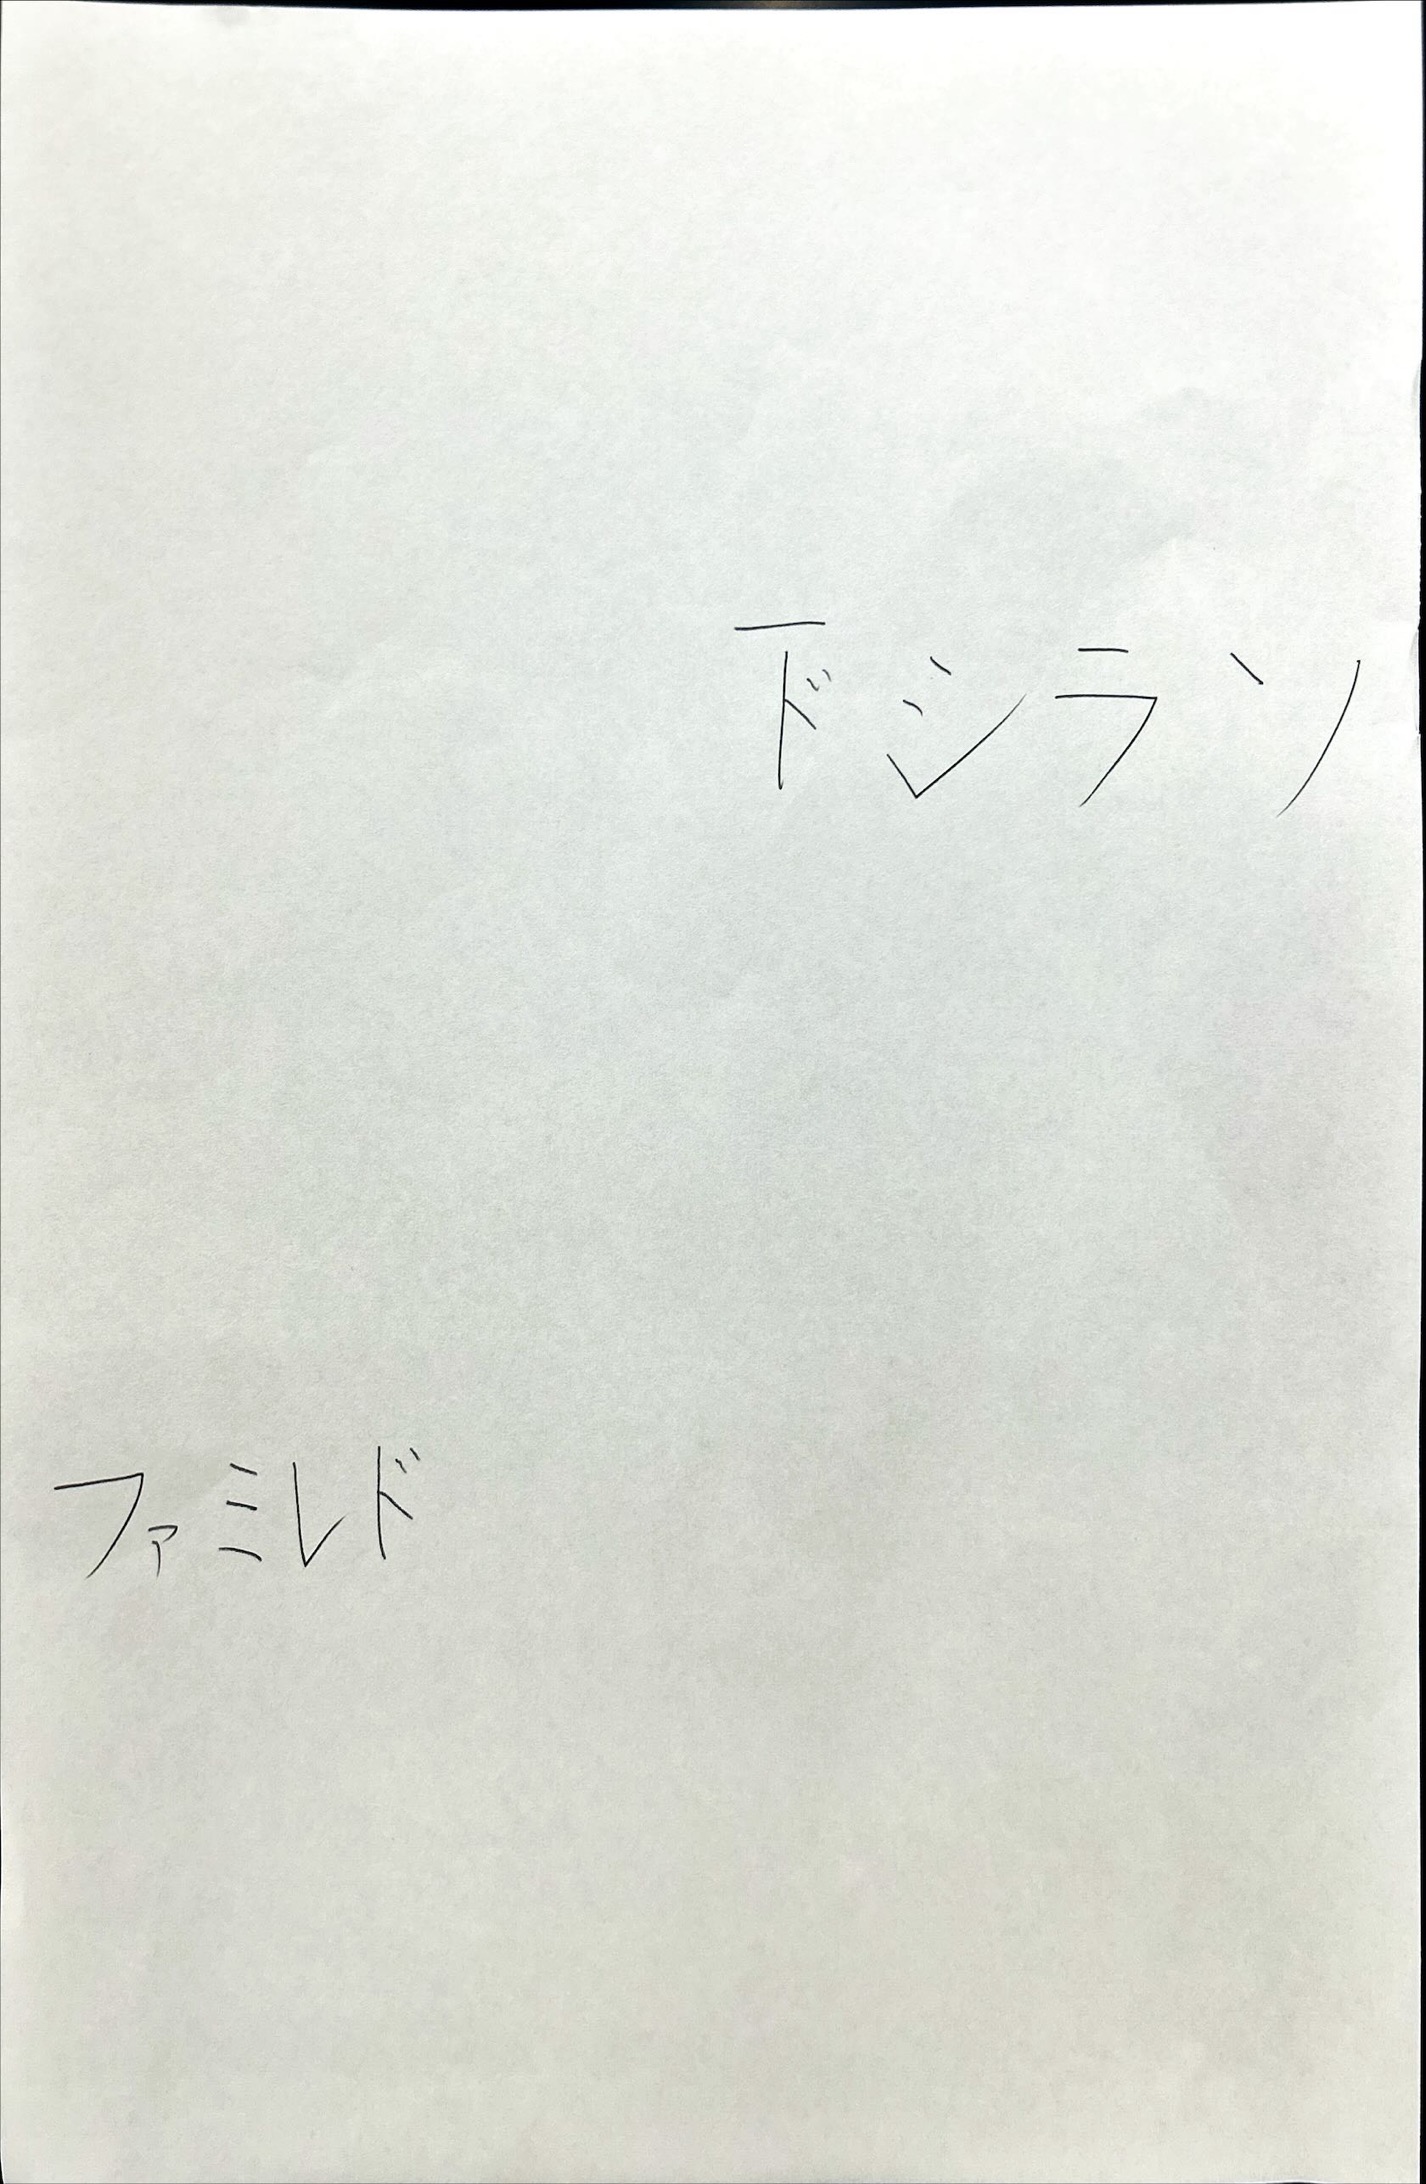 ドシラソ
ファミレド